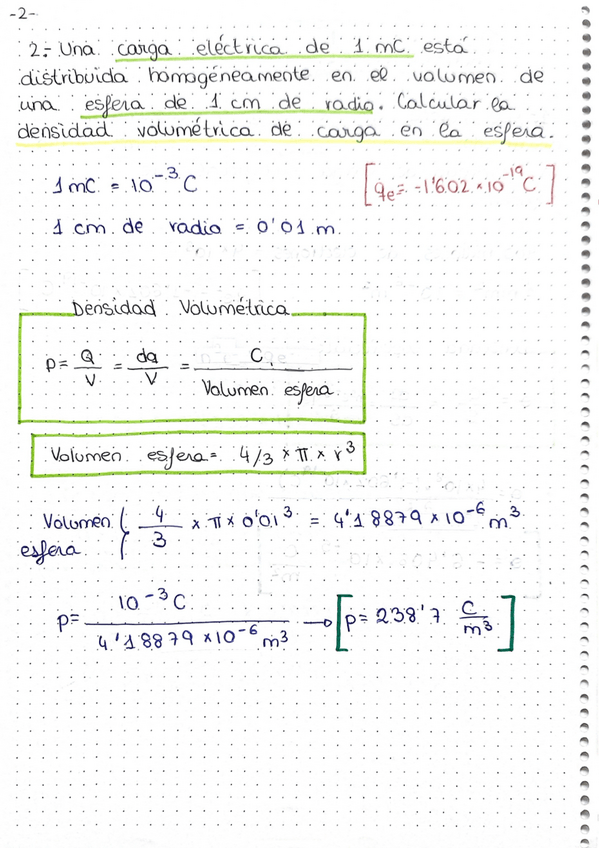 -2-
2.- Una carga eléctrica de 1 mC está
distribuida homogéneamente en el volumen de
una esfera de 1 cm de radio. Calcular la
densidad volumétrica de carga en la esfera.
1 mC = 10⁻³ C [qe = -1'602 × 10⁻¹⁹ C]
1 cm de radio = 0'01 m.
Densidad Volumétrica
p = Q/V = dq/V = C / Volumen esfera
Volumen esfera = 4/3 × π × r³
Volumen esfera { 4/3 × π × 0'01³ = 4'18879 × 10⁻⁶ m³
p = 10⁻³ C / 4'18879 × 10⁻⁶ m³ → [p = 238'7 C/m³]